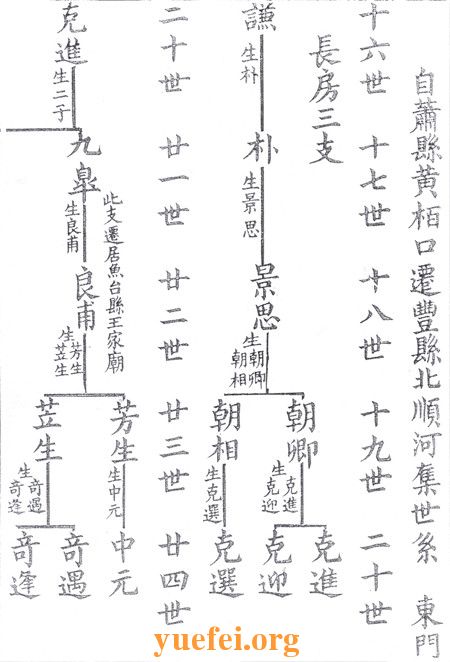 自蕭縣黃栢口遷豐縣北順河集世系 東門
十六世 十七世 十八世 十九世 二十世
長房三支
謙
生朴
朴
生景思
景思
生朝卿
朝相
朝卿
生克進
克迎
朝相
生克選
克進
克迎
克選
二十世 廿一世 廿二世 廿三世 廿四世
克進
生二子
九臯
生良甫
此支遷居魚台縣王家廟
良甫
生芳生
苙生
芳生
生中元
苙生
生奇遇
奇逢
中元
奇遇
奇逢
yuefei.org